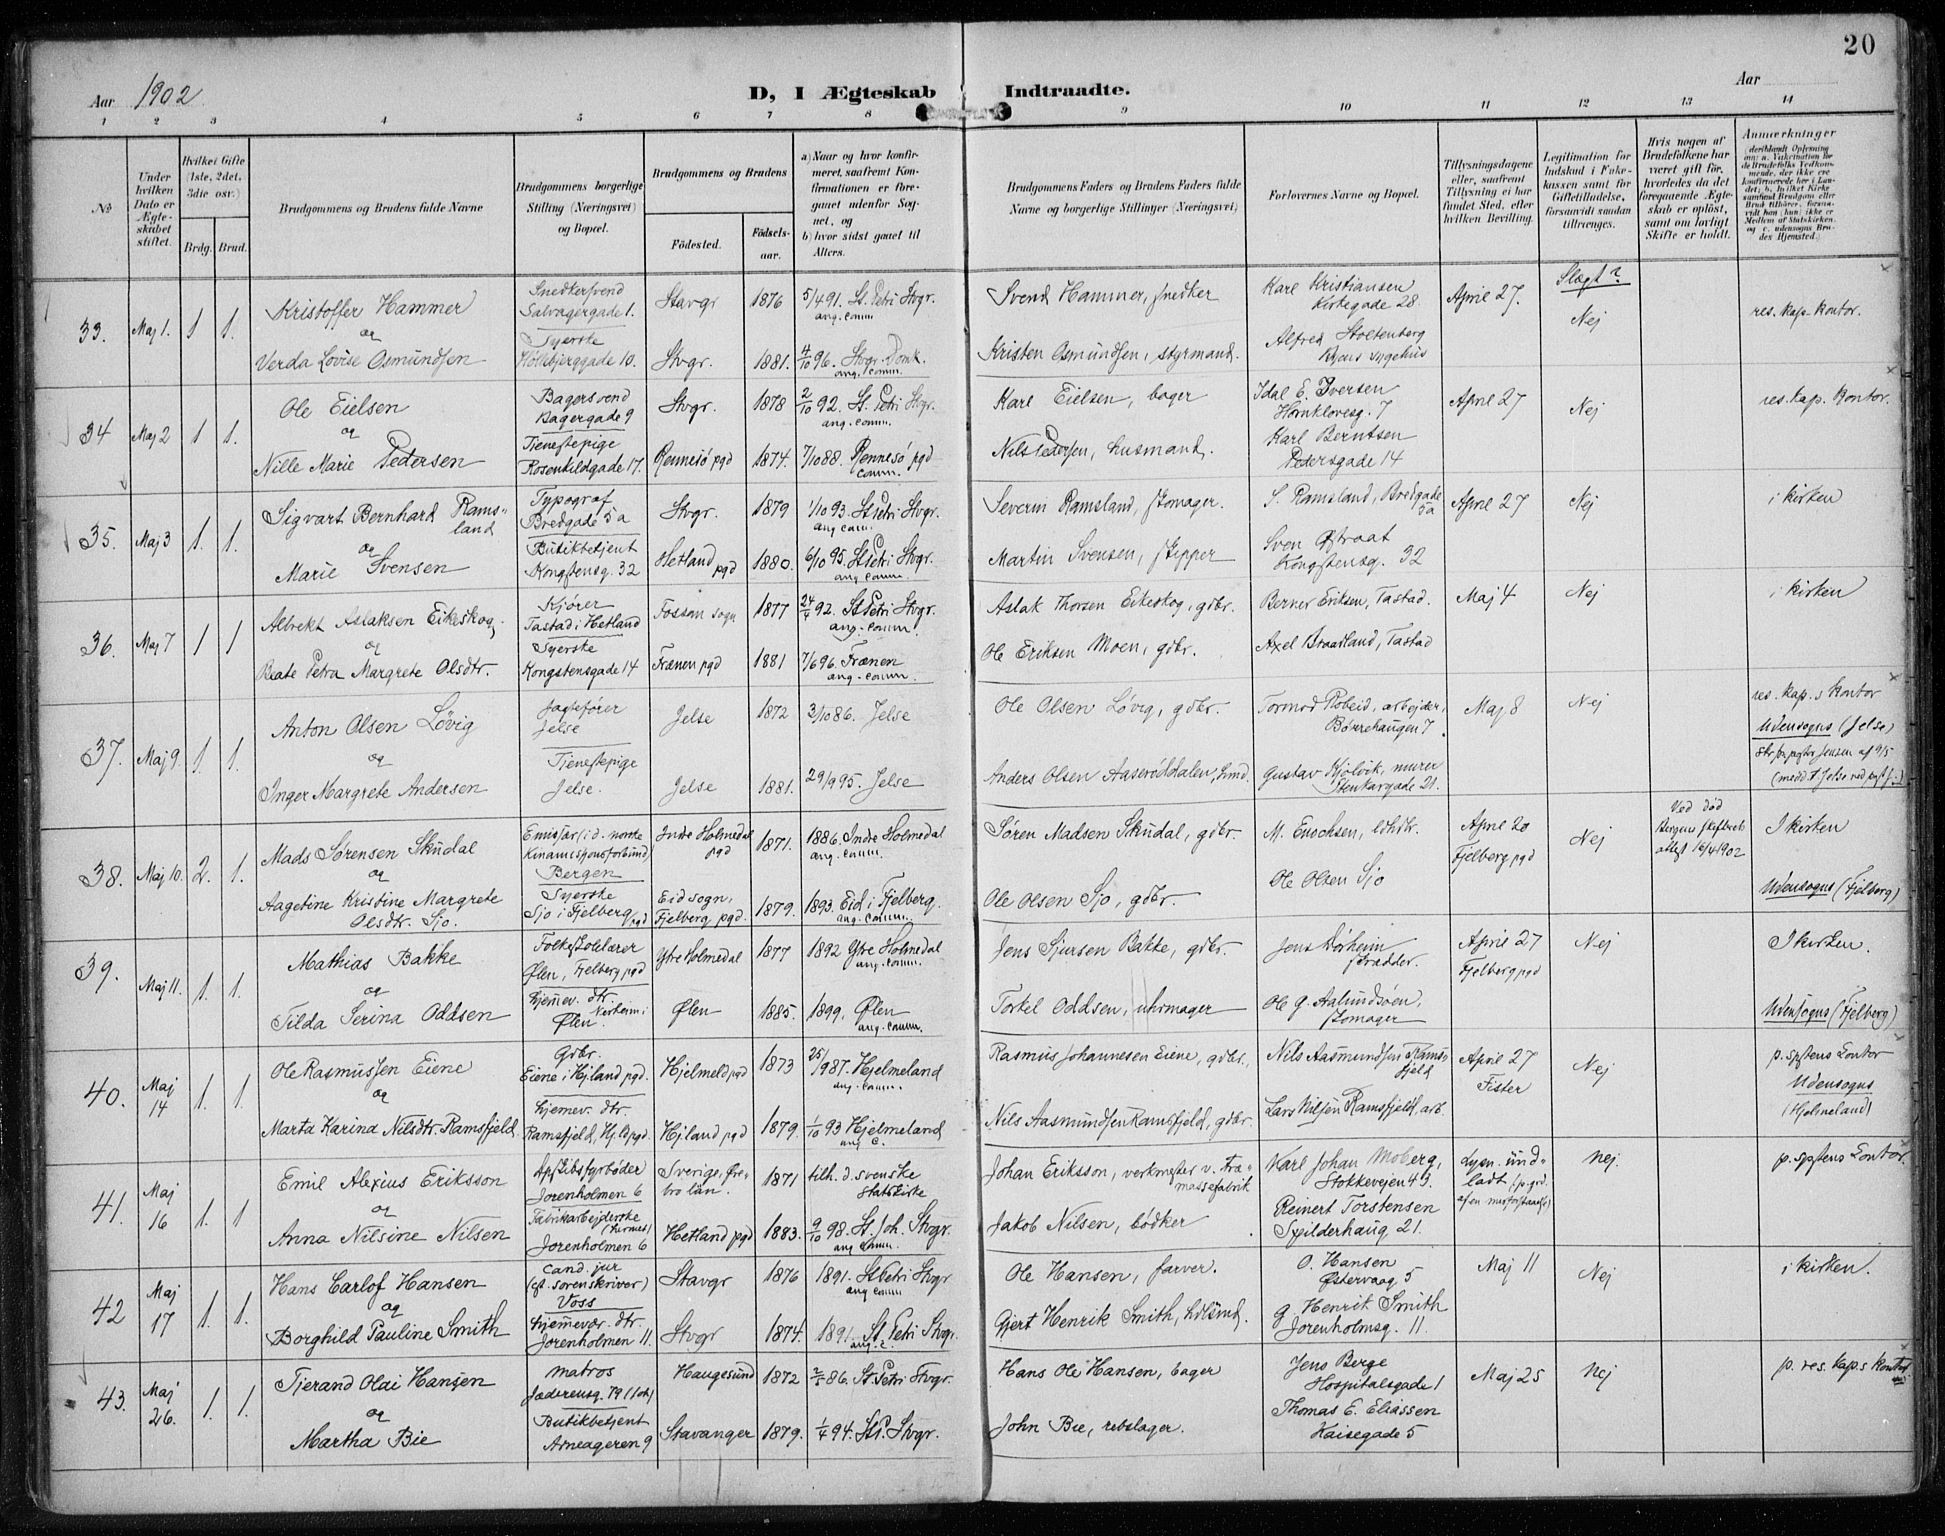 20
Aar 1902
D, I Ægteskab Indtraadte.
Aar
1 2 3 4 5 6 7 8 9 10 11 12 13 14
No
Under hvilken Dato er Ægteskabet stiftet.
Hvilket Gifte (1ste, 2det, 3die osv.)
Brdg. Brud.
Brudgommens og Brudens fulde Navne
Brudgommens borgerlige Stilling (Næringsvei) og Bopæl.
Brudgommens og Brudens
Födested.
Födselsaar.
a) Naar og hvor konfirmeret, saafremt Konfirmationen er foregaaet udenfor Sognet, og
b) hvor sidst gaaet til Alters.
Brudgommens Faders og Brudens Faders fulde Navne og borgerlige Stillinger (Næringsvei)
Forlovernes Navne og Bopæl.
Tillysningsdagene eller, saafremt Tillysning ei har fundet Sted, efter hvilken Bevilling.
Legitimation for Indskud i Enkekassen samt for Giftetilladelse, forsaavidt saadan tiltrænges.
Hvis nogen af Brudefolkene har været gift før, hvorledes da det foregaaende Ægteskab er opløst, samt om lovligt Skifte er holdt.
Anmærkninger (deriblandt Oplysning om: a. Vakcination for de Brudefolks Vedkommende, der ikke ere konfirmerede her i Landet; b. hvilket Kirkesamfund Brudgom eller Brud tilhører, forsaavidt han (hun) ikke er Medlem af Statskirken, og c. udensogns Brudes Hjemsted.)
33. Maj 1. 1 1.
Kristoffer Hammer
og
Verda Lovise Osmundsen
Snedkersvend
Salvagergade 1.
Syerske
Holebjerggade 10.
Stavgr 1876 5/4 91. St. Petri Stvgr.
ang. comm
Stvgr. 1881. 4/10 96. Stvgr. Domk.
ang. comm.
Svend Hammer, snedker
Kristen Osmundsen, styrmand.
Karl Kristiansen
Kirkegade 28.
Alfred Stoltenberg
Byens sygehus
April 27.
Slægt?
Nej
res. kap. kontor.
34 Maj 2 1 1.
Ole Eielsen
og
Nille Marie Pedersen
Bagersvend
Bagergade 9
Tjenestepige
Rosenkildgade 17.
Stvgr. 1878 2/10 92. St. Petri Stvgr.
ang. comm.
Rennesö pgd 1874. 7/10 88. Rennesö pgd
comm.
Karl Eielsen, bager
Nils Pedersen, husmand.
Idal E. Iversen
Hornklovesg. 7
Karl Berntsen
Pedersgade 14
April 27
Nej
res. kap. kontor.
35. Maj 3 1. 1.
Sigvart Bernhard Ramsland
og
Marie Svensen
Typograf
Bredgade 5a
Butikbetjent
Kongstensg. 32
Stvgr. 1879 1/10 93 St Petri Stvgr.
ang comm.
Hetland pgd 1880. 6/10 95. St Petri Stvgr.
ang comm.
Severin Ramsland, skomager.
Martin Svensen, skipper
S. Ramsland, Bredgade 5a
Sven Østraat
Kongstensg. 32
April 27
Nej
i kirken
36. Maj 7 1 1
Albrekt Aslaksen Eikeskog
og
Beate Petra Margrete Olsdtr.
Kjører
Tastad i Hetland
Syerske
Kongstensgade 14
Fossan sogn 1877 24/4 92. St Petri Stvgr.
ang. comm.
Frænen pgd 1881 7/6 96. Frænen
ang. comm.
Aslak Thorsen Eikeskog, gdbr.
Ole Eriksen Moen, gdbr.
Berner Eriksen, Tastad.
Axel Braadland, Tastad
Maj 4
Nej
i kirken
37. Maj 9. 1. 1.
Anton Olsen Løvig
og
Inger Margrete Andersen
Jagtefører
Jelse
Tjenestepige
Jelse.
Jelse 1872 3/10 86. Jelse
Jelse 1881. 29/9 95. Jelse
Ole Olsen Løvig, gdbr.
Anders Olsen Aaserøddalen, hmd.
Tormod Robeid, arbejder,
Børrehaugen 7.
Gustav Kjølvik, murer
Stenkargade 21.
Maj 8
Nej
res. kap.s kontor
Udensogns (Jelse)
38. Maj 10. 2. 1.
Mads Sørensen Skudal
og
Aagetine Kristine Margrete
Olsdtr. Sjo.
Emissær i d. norske
Kinamissjonsforbund
Bergen
Syerske
Sjo i Fjelberg pgd
Indre Holmedal pgd 1871. 1886. Indre Holmedal
ang. comm.
Eid sogn, Fjelberg pgd. 1879. 1893. Eid i Fjelberg.
ang. comm.
Søren Madsen Skudal, gdbr.
Ole Olsen Sjo, gdbr.
M. Enochsen, ldhdlr.
Ole Olsen Sjo
April 20
Fjelberg pgd
Nej
Ved død
Bergens skifterets
attest 16/4 1902
I kirken
Udensogns (Fjelberg)
39. Maj 11. 1. 1.
Mathias Bakke
og
Tilda Serina Oddsen
Folkeskolelærer
Ølen, Fjelberg pgd
hjemev. dtr.
Ølen.
Ytre Holmedal 1877 1892 Ytre Holmedal
ang. comm.
Ølen 1885. 1899. Ølen
ang. comm.
Jens Sjursen Bakke, gdbr.
Torkel Oddsen, uhrmager
Jens Dørheim
skrædder.
Ole G. Aalundsøen,
skomager
April 27
Fjelberg pgd
Nej
I kirken.
Udensogns (Fjelberg)
40. Maj 14 1. 1.
Ole Rasmussen Eiene
og
Marta Karina Nilsdtr. Ramsfjeld
Gdbr.
Eiene i Hj.land pgd.
hjemev. dtr.
Ramsfjeld, Hj.ld pgd.
Hjelmeld pgd 1873 25/9 87. Hjelmeland
ang. comm.
Hj.land pgd 1879. 1/10 93 Hjelmeland
ang c.
Rasmus Johannesen Eiene, gdbr.
Nils Aasmundsen Ramsfjeld, gdbr.
Nils Aasmundsen Ramsfjeld
Lars Nilsen Ramsfjeld, arb.
April 27
Fister
Nej
p. spstens kontor
Udensogns
(Hjelmeland)
41. Maj 16 1. 1
Emil Alexius Eriksson
og
Anna Nilsine Nilsen
Dpskibsfyrbøder
Jorenholmen 6
Fabrikarbejderske
(hermet.)
Jorenholmen 6
Sverige, Örebro län. 1871 tilh. d. svenske
Statskirke
Hetland pgd 1883. 9/10 98. St. Joh. Stvgr.
ang comm.
Johan Eriksson, verkmester v. Træmassefabrik
Jakob Nilsen, bødker
Karl Johan Moberg,
Stokkevejen 45.
Reinert Torstensen
Sypilderhaug 21.
Lysn. undladt
Nej.
p. spstens kontor.
42 Maj 17 1. 1.
Hans Carlof Hansen
og
Borghild Pauline Smith
cand. jur
(cst. sorenskriver)
Voss
hjemmevær. dtr.
Jorenholmen 11.
Stavgr 1876 1891. St Petri Stvgr.
ang comm
Stvgr 1874. 1891. St. Petri Stvgr.
ang. c.
Ole Hansen, farver.
Gjert Henrik Smith, hdlsmd.
O. Hansen
Østervaag 5
G. Henrik Smith
Jorenholmsg. 11.
Maj 11
Nej
i kirken.
43. Maj 26. 1. 1.
Tjerand Olai Hansen
og
Martha Bie
Matros
Jæderensg. 79 (Joh)
Butikbetjent
Arneageren 9
Haugesund 1872 2/5 86. St Petri Stvgr.
Stavanger 1879. 1/4 94. St P. Stvgr.
Hans Ole Hansen, bager
John Bie, rebslager.
Jens Berge
Hospitalsgade 1
Thomas E. Eliassen
Kaisegade 5
Maj 25
Nej
p. res. kap.s kontor